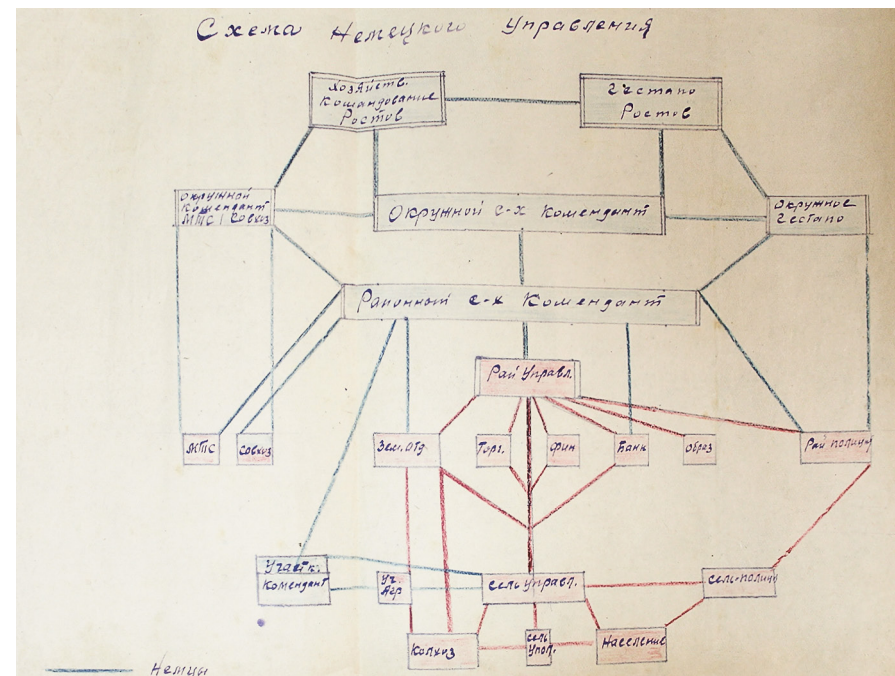 Схема Немецкого Управления
Хозяйств.
Командование
Ростов
Гестапо
Ростов
Окружной
Комендант
МТС и Совхоз
Окружной с-х Комендант
Окружное
Гестапо
Районный с-х Комендант
Рай Управл.
МТС
Совхоз
Зем. Отд.
Торг.
Фин
Банк
Образ
Рай полиция
Участк.
Комендант
Уч.
Агр
Сель Управл.
Сель-полиция
Колхоз
Сель
Упол.
Население
Немцы